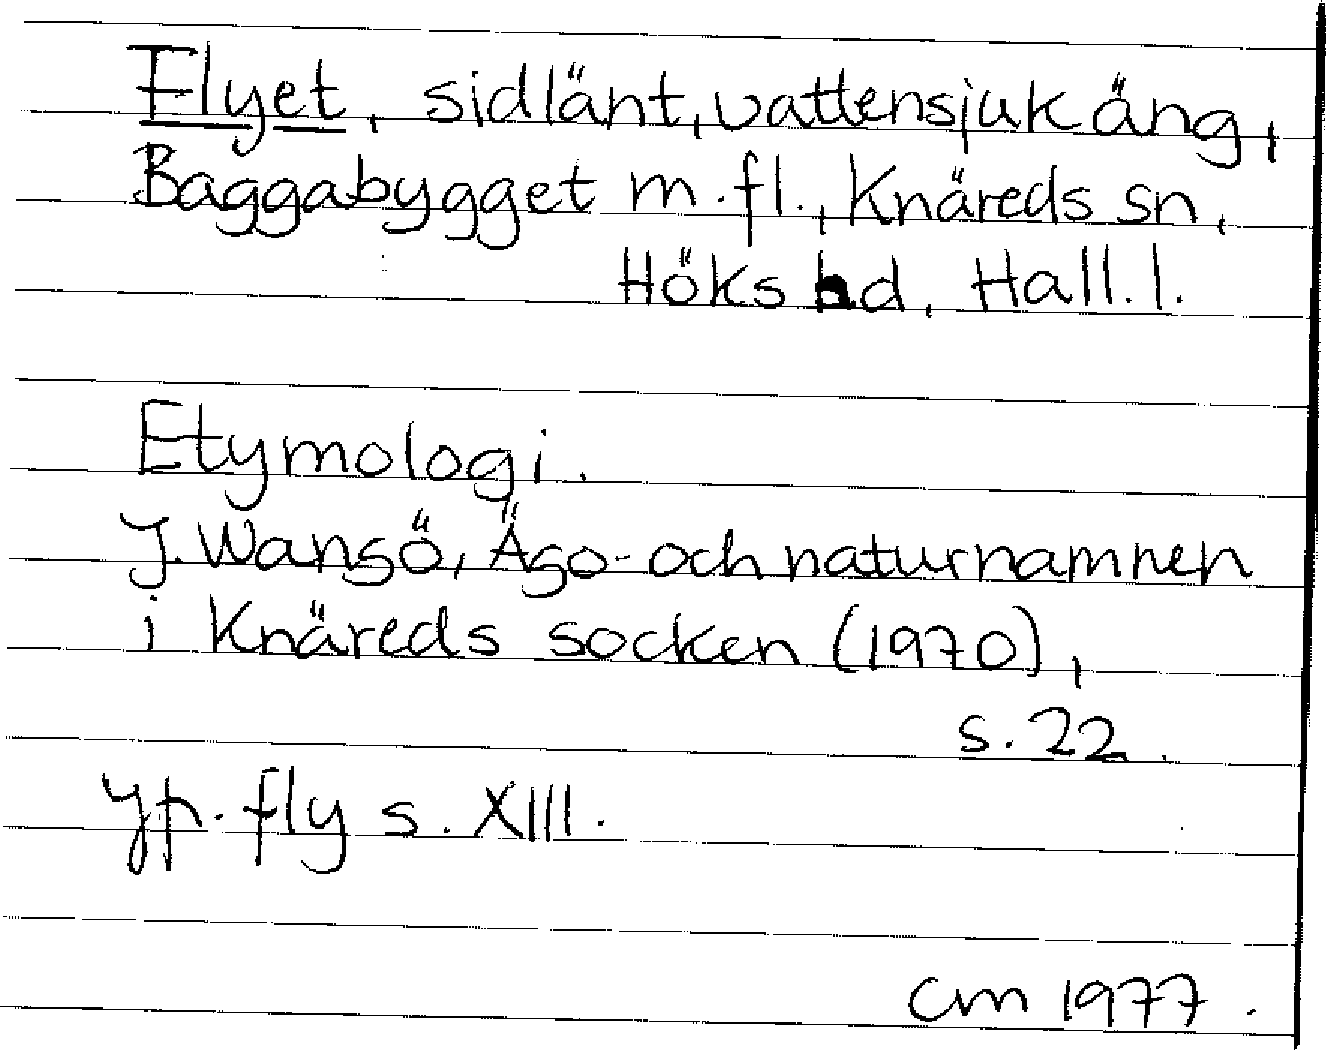 Flyet, sidlänt, vattensjuk äng,
Baggabygget m.fl., Knäreds sn,
Höks hd, Hall. l.
Etymologi.
J. Wangsö, Ägo- och naturnamnen
i Knäreds socken (1970),
s. 22.
Jfr. fly s. XIII.
CM 1977.